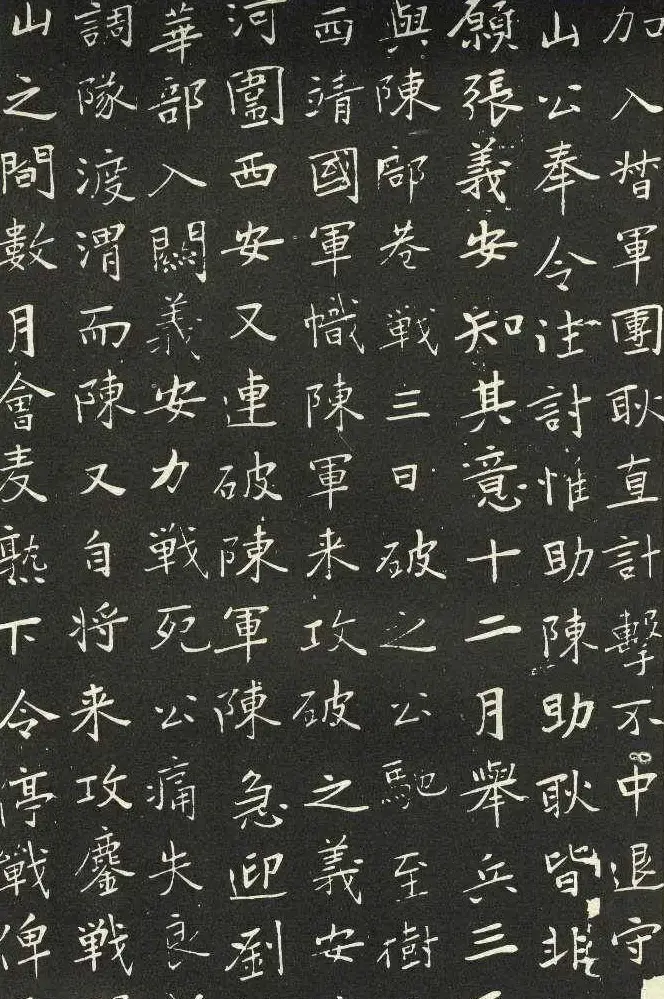 加入督軍團耿直計擊不中退守
山公奉令往討惟助陳助耿皆非
願張義安知其意十二月舉兵三
與陳部巷戰三日破之公馳至樹
西靖國軍幟陳軍来攻破之義安
河圍西安又連破陳軍陳急迎劉
華部入關義安力戰死公痛失良
調隊渡渭而陳又自將来攻鏖戰
山之間數月會麦熟下令停戰俾